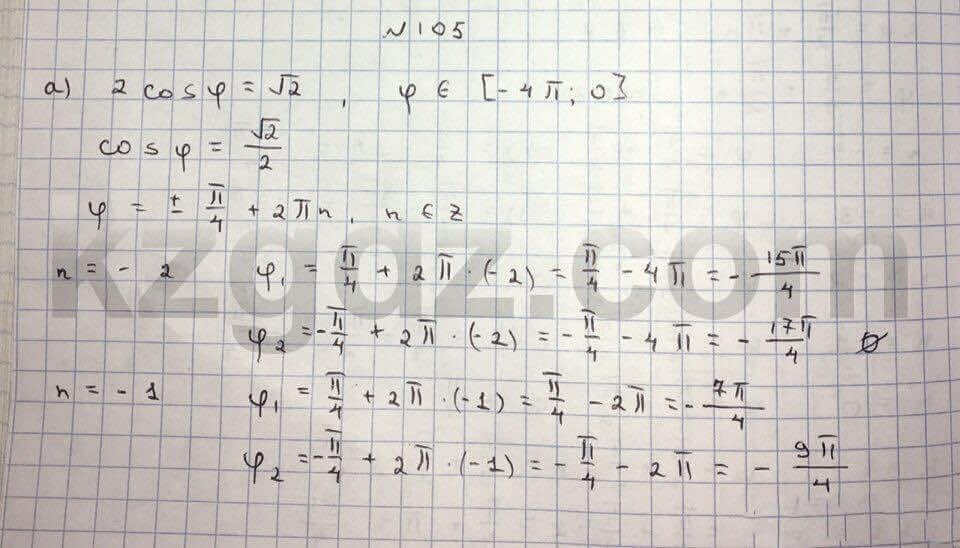 №105
а) 2 cos φ = √2 , φ ∈ [-4π; 0]
cos φ = √2/2
φ = ± π/4 + 2πn, n ∈ Z
n = - 2 φ₁ = π/4 + 2π · (-2) = π/4 - 4π = - 15π/4
φ₂ = -π/4 + 2π · (-2) = - π/4 - 4π = - 17π/4 ∅
n = - 1 φ₁ = π/4 + 2π · (-1) = π/4 - 2π = - 7π/4
φ₂ = -π/4 + 2π · (-1) = - π/4 - 2π = - 9π/4
kzgdz.com